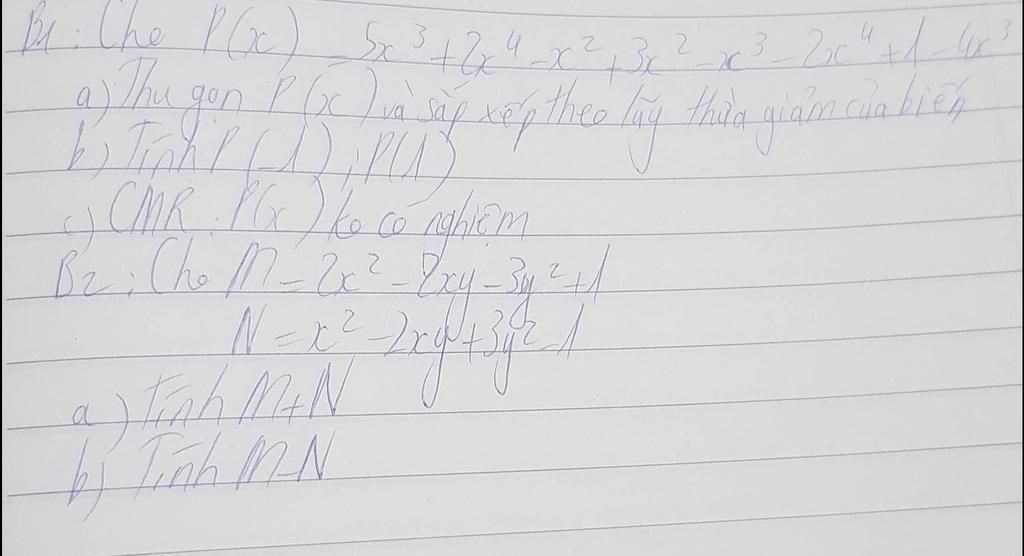 B1: Cho P(x) = 5x³ + 2x⁴ - x² + 3x² - x³ - 2x⁴ + 1 - 4x³
a) Thu gọn P(x) và sắp xếp theo lũy thừa giảm của biến
b) Tính P(-1); P(1)
c) CMR: P(x) ko có nghiệm
B2: Cho M = 2x² - 2xy - 3y² + 1
N = x² - 2xy + 3y² - 1
a) Tính M+N
b) Tính M-N